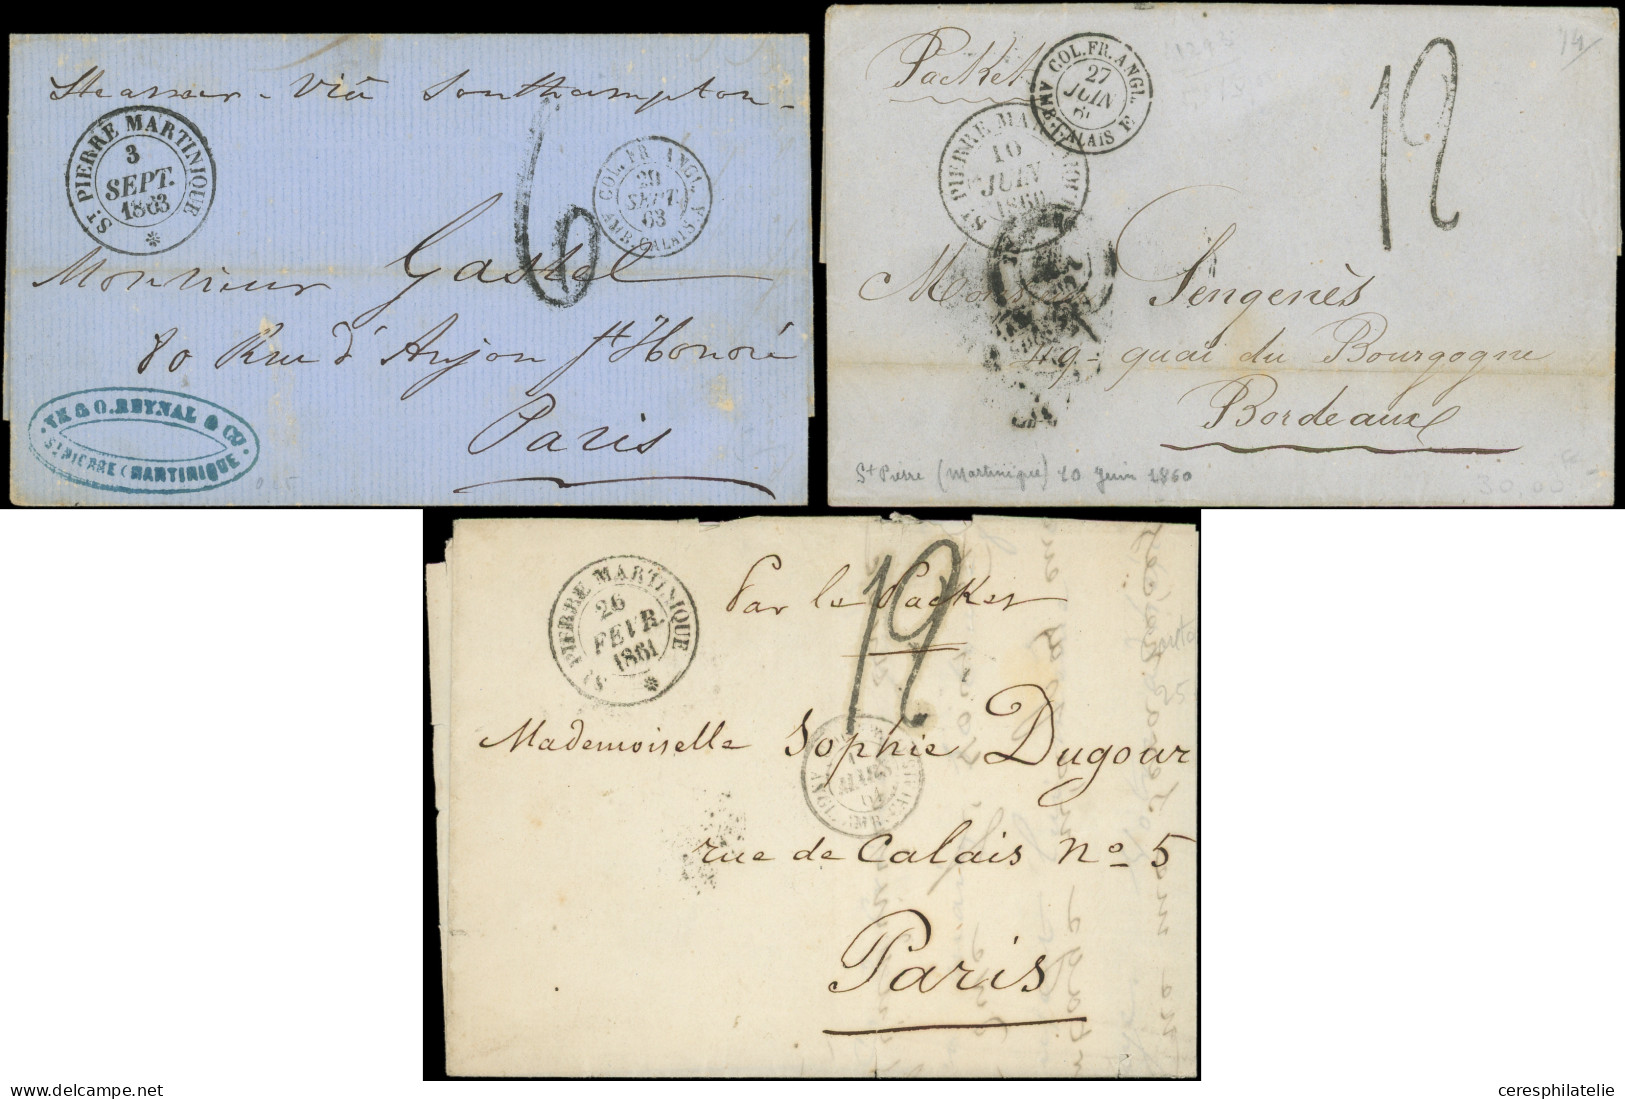 Steamer - Viâ Southampton -
ST PIERRE MARTINIQUE
3
SEPT.
1863
6
COL. FR. ANGL.
20
SEPT.
63
AMB. CALAIS
Monsieur Gastel
80 Rue d'Anjou St Honoré
Paris
& O. REYNAL & CO
ST PIERRE (MARTINIQUE)
Packet
COL. FR. ANGL.
27
JUIN
60
AMB. CALAIS E
12
ST PIERRE MARTINIQUE
10
JUIN
1860
Monsieur Sengenès
quai du Bourgogne
Bordeaux
St Pierre (Martinique) 10 Juin 1860
30,00
ST PIERRE MARTINIQUE
26
FEVR.
1861
Par le Packet
12
Mademoiselle Sophie Dugour
MARS
61
rue de Calais no 5
Paris
delcampe.net
ceresphilatelie